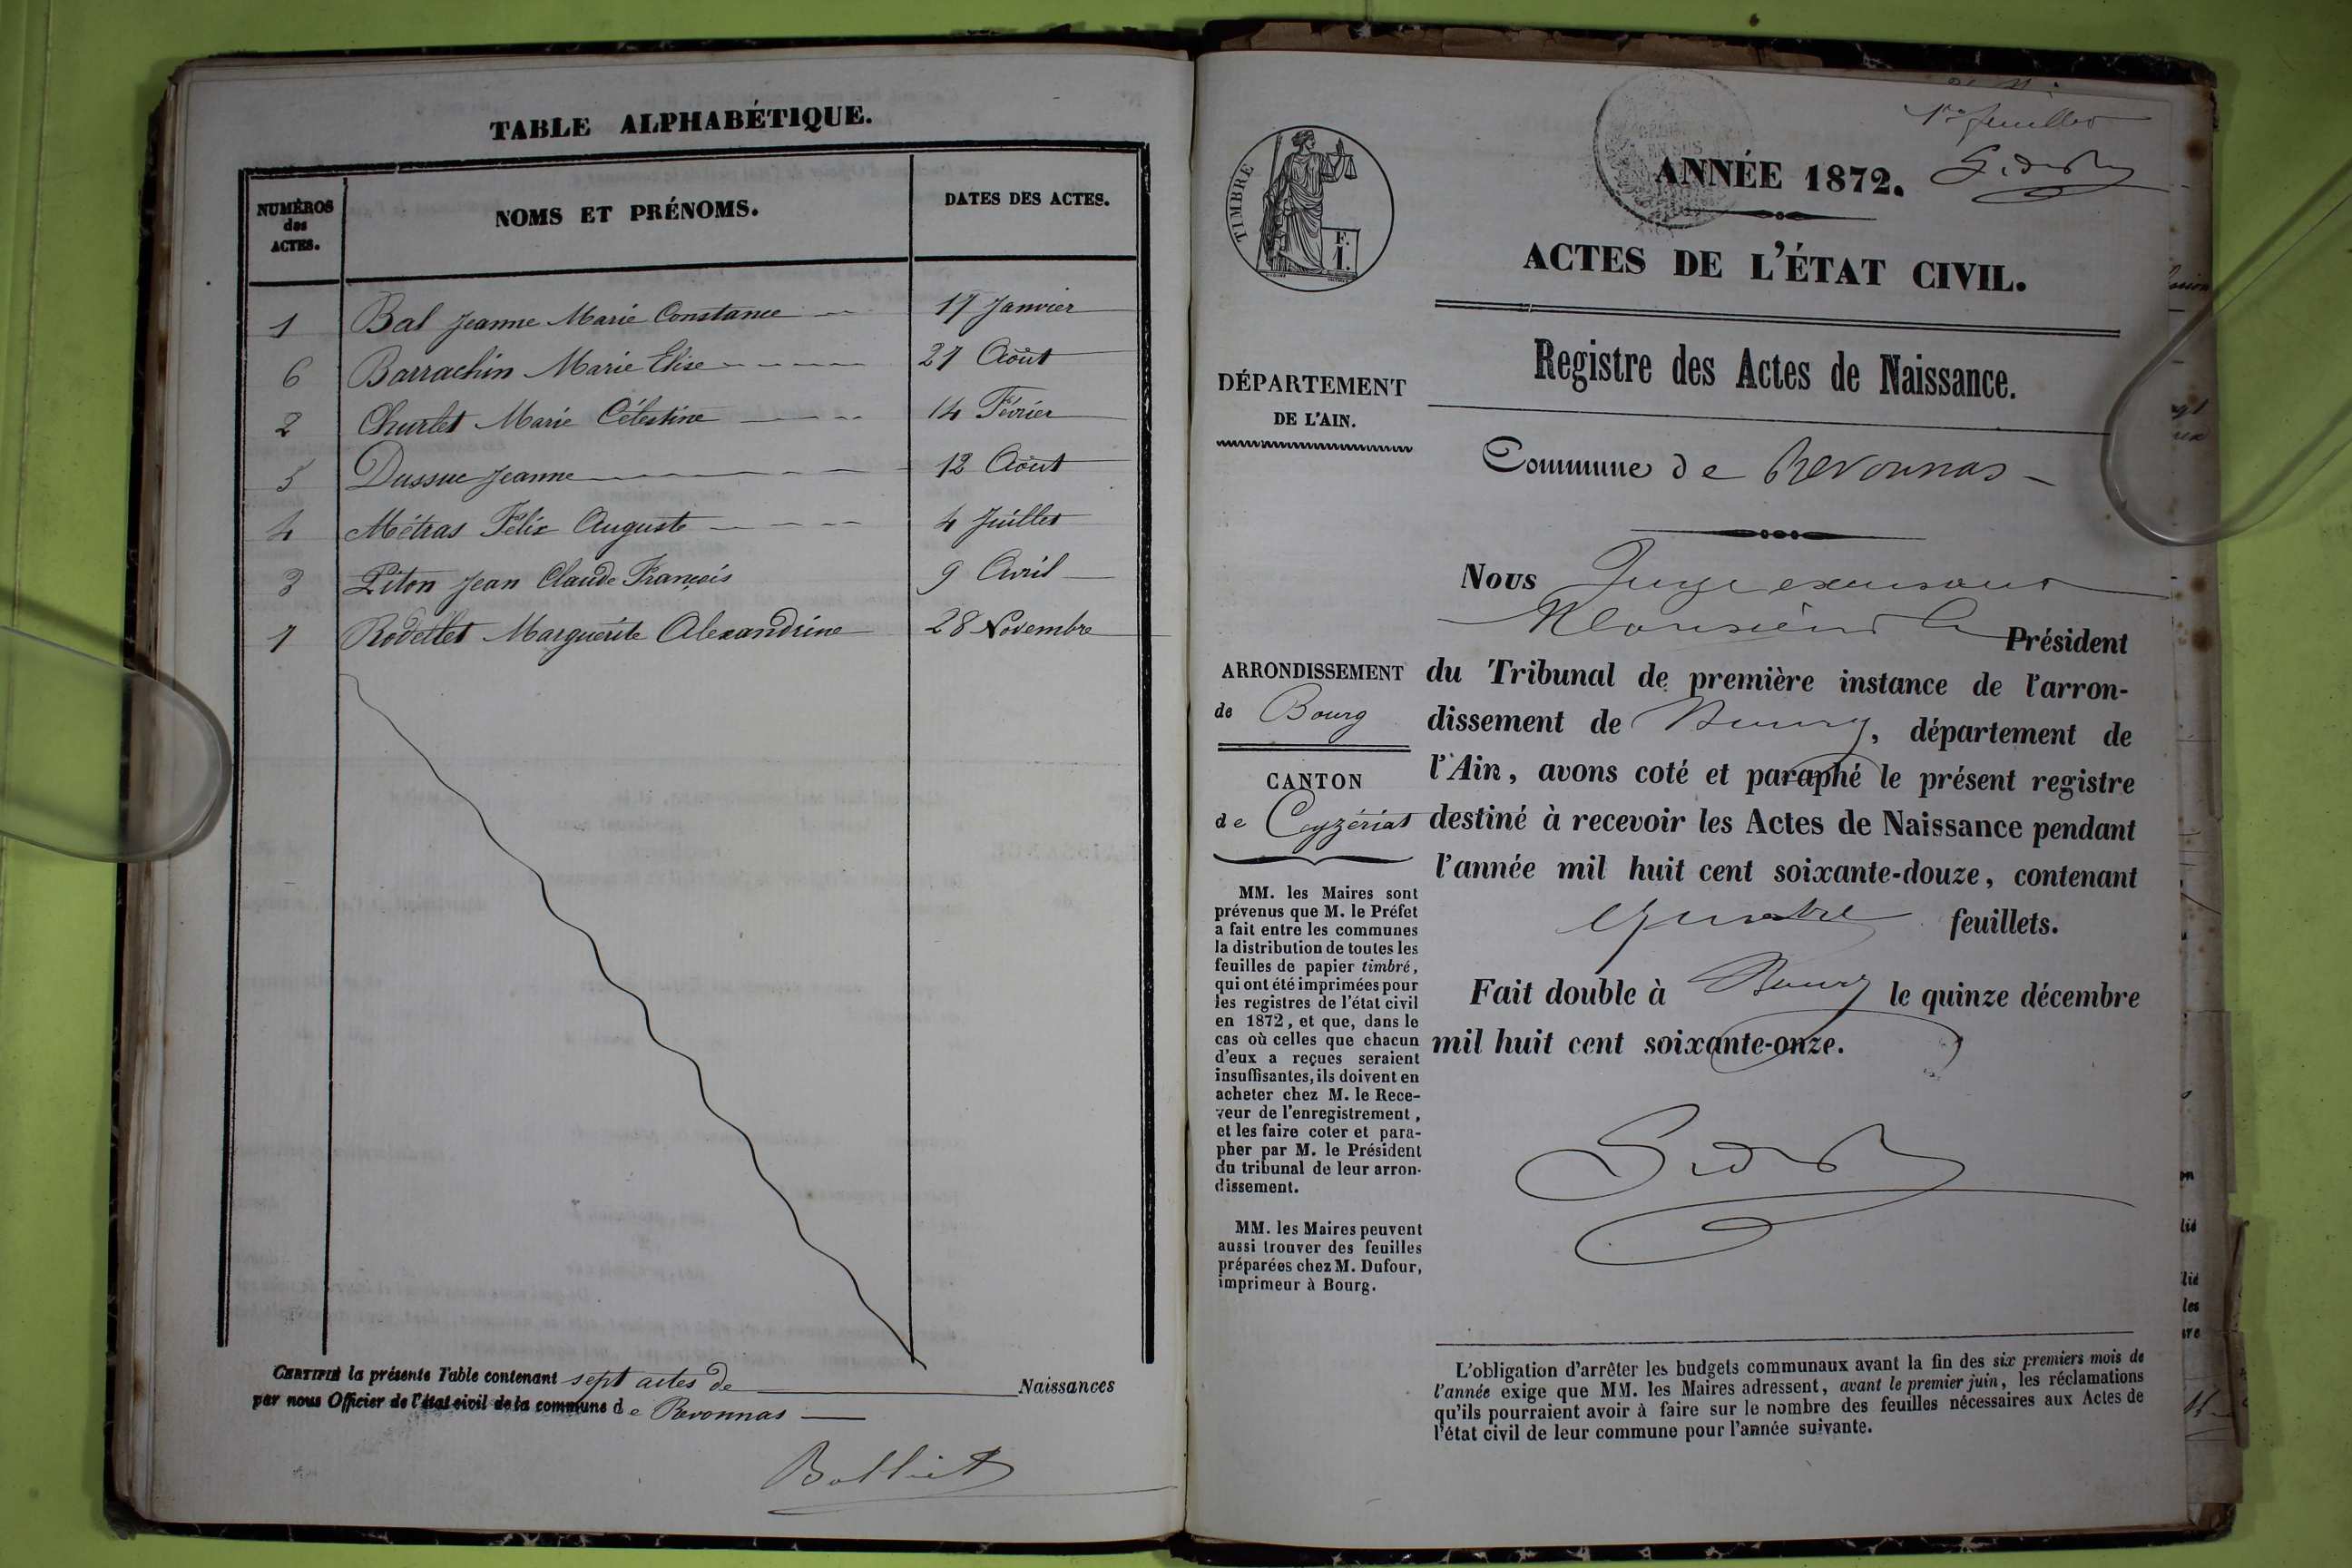 TABLE ALPHABÉTIQUE.
NUMÉROS des ACTES.
NOMS ET PRÉNOMS.
DATES DES ACTES.
1 Bal Jeanne Marie Constance 17 Janvier
6 Barrachin Marie Elise 27 Août
2 Churlet Marie Célestine 14 Février
5 Dussuc Jeanne 12 Août
4 Métras Félix Auguste 4 Juillet
3 Piton Jean Claude François 9 Avril
7 Rodellet Marguerite Alexandrine 28 Novembre
CERTIFIÉ la présente Table contenant sept actes de Naissances
par nous Officier de l'état civil de la commune de Revonnas
Bolliet
1er feuillet
TIMBRE
F.
1.
ANNÉE 1872.
ACTES DE L'ÉTAT CIVIL.
Registre des Actes de Naissance.
DÉPARTEMENT
DE L'AIN.
Commune de Revonnas
Nous Juge
Monsieur le Président
ARRONDISSEMENT
de Bourg
CANTON
de Ceyzériat
du Tribunal de première instance de l'arron-
dissement de Bourg, département de
l'Ain, avons coté et paraphé le présent registre
destiné à recevoir les Actes de Naissance pendant
l'année mil huit cent soixante-douze, contenant
quatre feuillets.
Fait double à Bourg le quinze décembre
mil huit cent soixante-onze.
MM. les Maires sont
prévenus que M. le Préfet
a fait entre les communes
la distribution de toutes les
feuilles de papier timbré,
qui ont été imprimées pour
les registres de l'état civil
en 1872, et que, dans le
cas où celles que chacun
d'eux a reçues seraient
insuffisantes, ils doivent en
acheter chez M. le Rece-
veur de l'enregistrement,
et les faire coter et para-
pher par M. le Président
du tribunal de leur arron-
dissement.
MM. les Maires peuvent
aussi trouver des feuilles
préparées chez M. Dufour,
imprimeur à Bourg.
L'obligation d'arrêter les budgets communaux avant la fin des six premiers mois de
l'année exige que MM. les Maires adressent, avant le premier juin, les réclamations
qu'ils pourraient avoir à faire sur le nombre des feuilles nécessaires aux Actes de
l'état civil de leur commune pour l'année suivante.